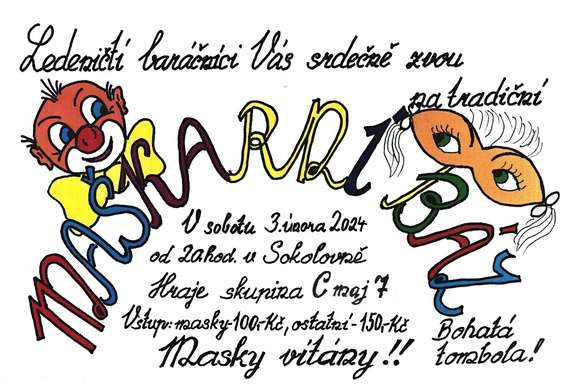 Ledeničtí baráčníci Vás srdečně zvou
na tradiční
MAŠKARNÍ BÁL
V sobotu 3. února 2024
od 20 hod. v Sokolovně
Hraje skupina C maj 7
Vstup: masky-100,-Kč, ostatní-150,-Kč
Masky vítány!!
Bohatá
tombola!